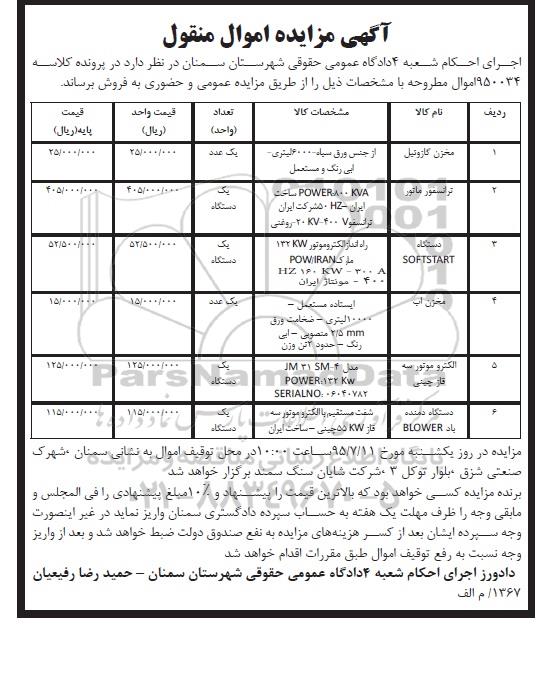 آگهی مزایده اموال منقول
اجرای احکام شعبه ۴دادگاه عمومی حقوقی شهرستان سمنان در نظر دارد در پرونده کلاسه
۹۵۰۰۳۴اموال مطروحه با مشخصات ذیل را از طریق مزایده عمومی و حضوری به فروش برساند.
ردیف نام کالا مشخصات کالا تعداد (واحد) قیمت واحد (ریال) قیمت پایه(ریال)
۱ مخزن گازوئیل از جنس ورق سیاه-۶۰۰۰لیتری- یک عدد ۲۵/۰۰۰/۰۰۰ ۲۵/۰۰۰/۰۰۰
ابی رنگ و مستعمل
۲ ترانسفور ماتور POWER:۸۰۰ KVA ساخت یک ۴۰۵/۰۰۰/۰۰۰ ۴۰۵/۰۰۰/۰۰۰
ایران –۵۰ HZشرکت ایران دستگاه
ترانسفو۲۰ KV-۴۰۰ V-روغنی
۳ دستگاه راه اندازالکتروموتور ۱۳۲ KW یک ۵۲/۵۰۰/۰۰۰ ۵۲/۵۰۰/۰۰۰
SOFTSTART مارکPOW/IRAN دستگاه
HZ ۱۶۰ KW - ۳۰۰ A
۴۰۰ - مونتاژ ایران
۴ مخزن اب ایستاده مستعمل – یک عدد ۱۵/۰۰۰/۰۰۰ ۱۵/۰۰۰/۰۰۰
۱۰۰۰۰لیتری – ضخامت ورق
۲/۵ mm منصوبی – ابی
رنگ – حدود ۲تن وزن
۵ الکترو موتور سه مدل JM ۳۱ SM-۴ یک ۱۲۵/۰۰۰/۰۰۰ ۱۲۵/۰۰۰/۰۰۰
فاز چینی POWER:۱۳۲ Kw دستگاه
SERIALNO: ۰۶۰۴۰۷۸۲
۶ دستگاه دمنده شفت مستقیم باالکترو موتور سه یک ۱۱۵/۰۰۰/۰۰۰ ۱۱۵/۰۰۰/۰۰۰
باد BLOWER فاز ۵۵ KWچینی – ساخت ایران دستگاه
مزایده در روز یکشنبه مورخ ۹۵/۷/۱۱ساعت ۱۰:۰۰در محل توقیف اموال به نشانی سمنان ،شهرک
صنعتی شرق ،بلوار توکل ۳ ،شرکت شایان سنگ سمند برگزار خواهد شد
برنده مزایده کسی خواهد بود که بالاترین قیمت را پیشنهاد و ۱۰٪مبلغ پیشنهادی را فی المجلس و
مابقی وجه را ظرف مهلت یک هفته به حساب سپرده دادگستری سمنان واریز نماید در غیر اینصورت
وجه سپرده ایشان بعد از کسر هزینه‌های مزایده به نفع صندوق دولت ضبط خواهد شد و بعد از واریز
وجه نسبت به رفع توقیف اموال طبق مقررات اقدام خواهد شد
دادورز اجرای احکام شعبه ۴دادگاه عمومی حقوقی شهرستان سمنان – حمید رضا رفیعیان
۱۳۶۷/ م الف
ParsNamadData